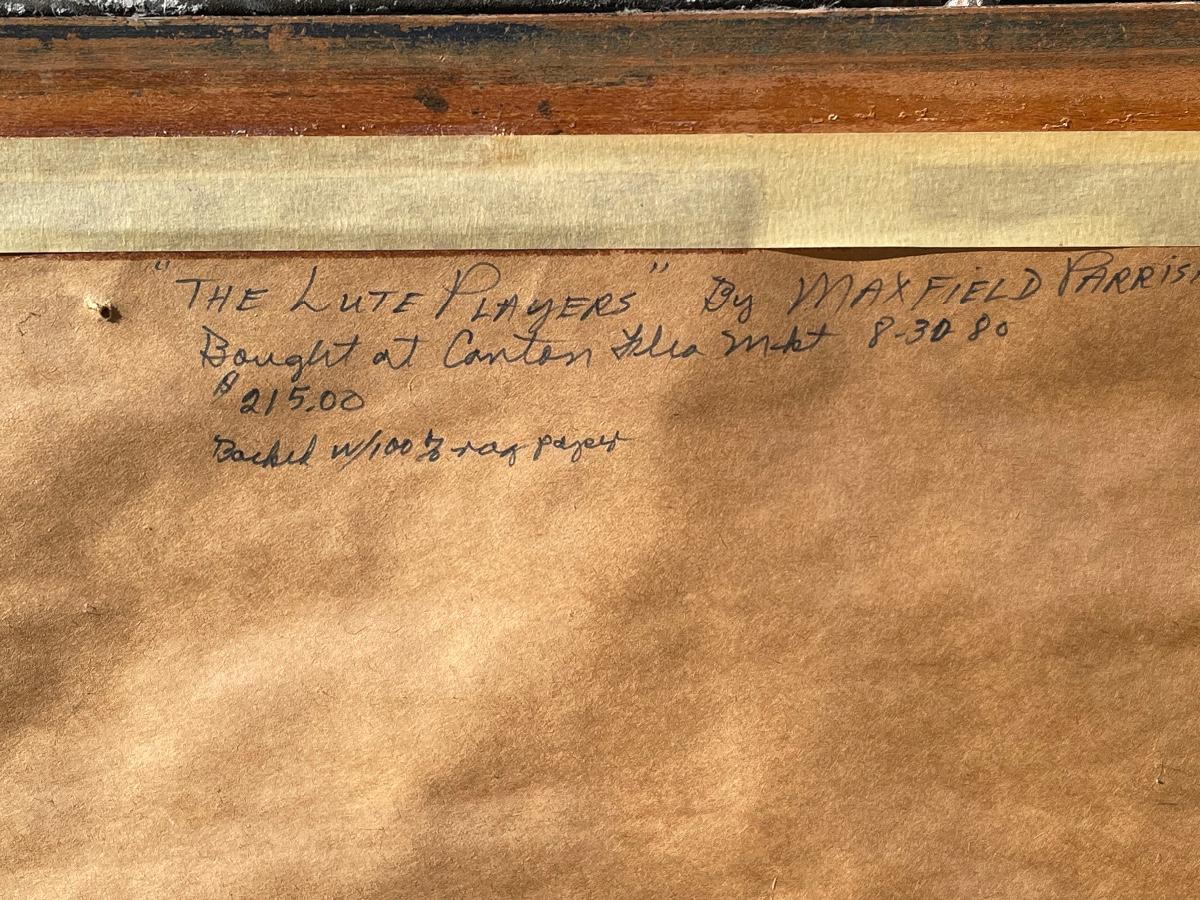 "THE LUTE PLAYERS" By MAXFIELD PARRIS
Bought at Canton Flea Mkt 8-30 80
$215.00
Backed w/100% rag paper